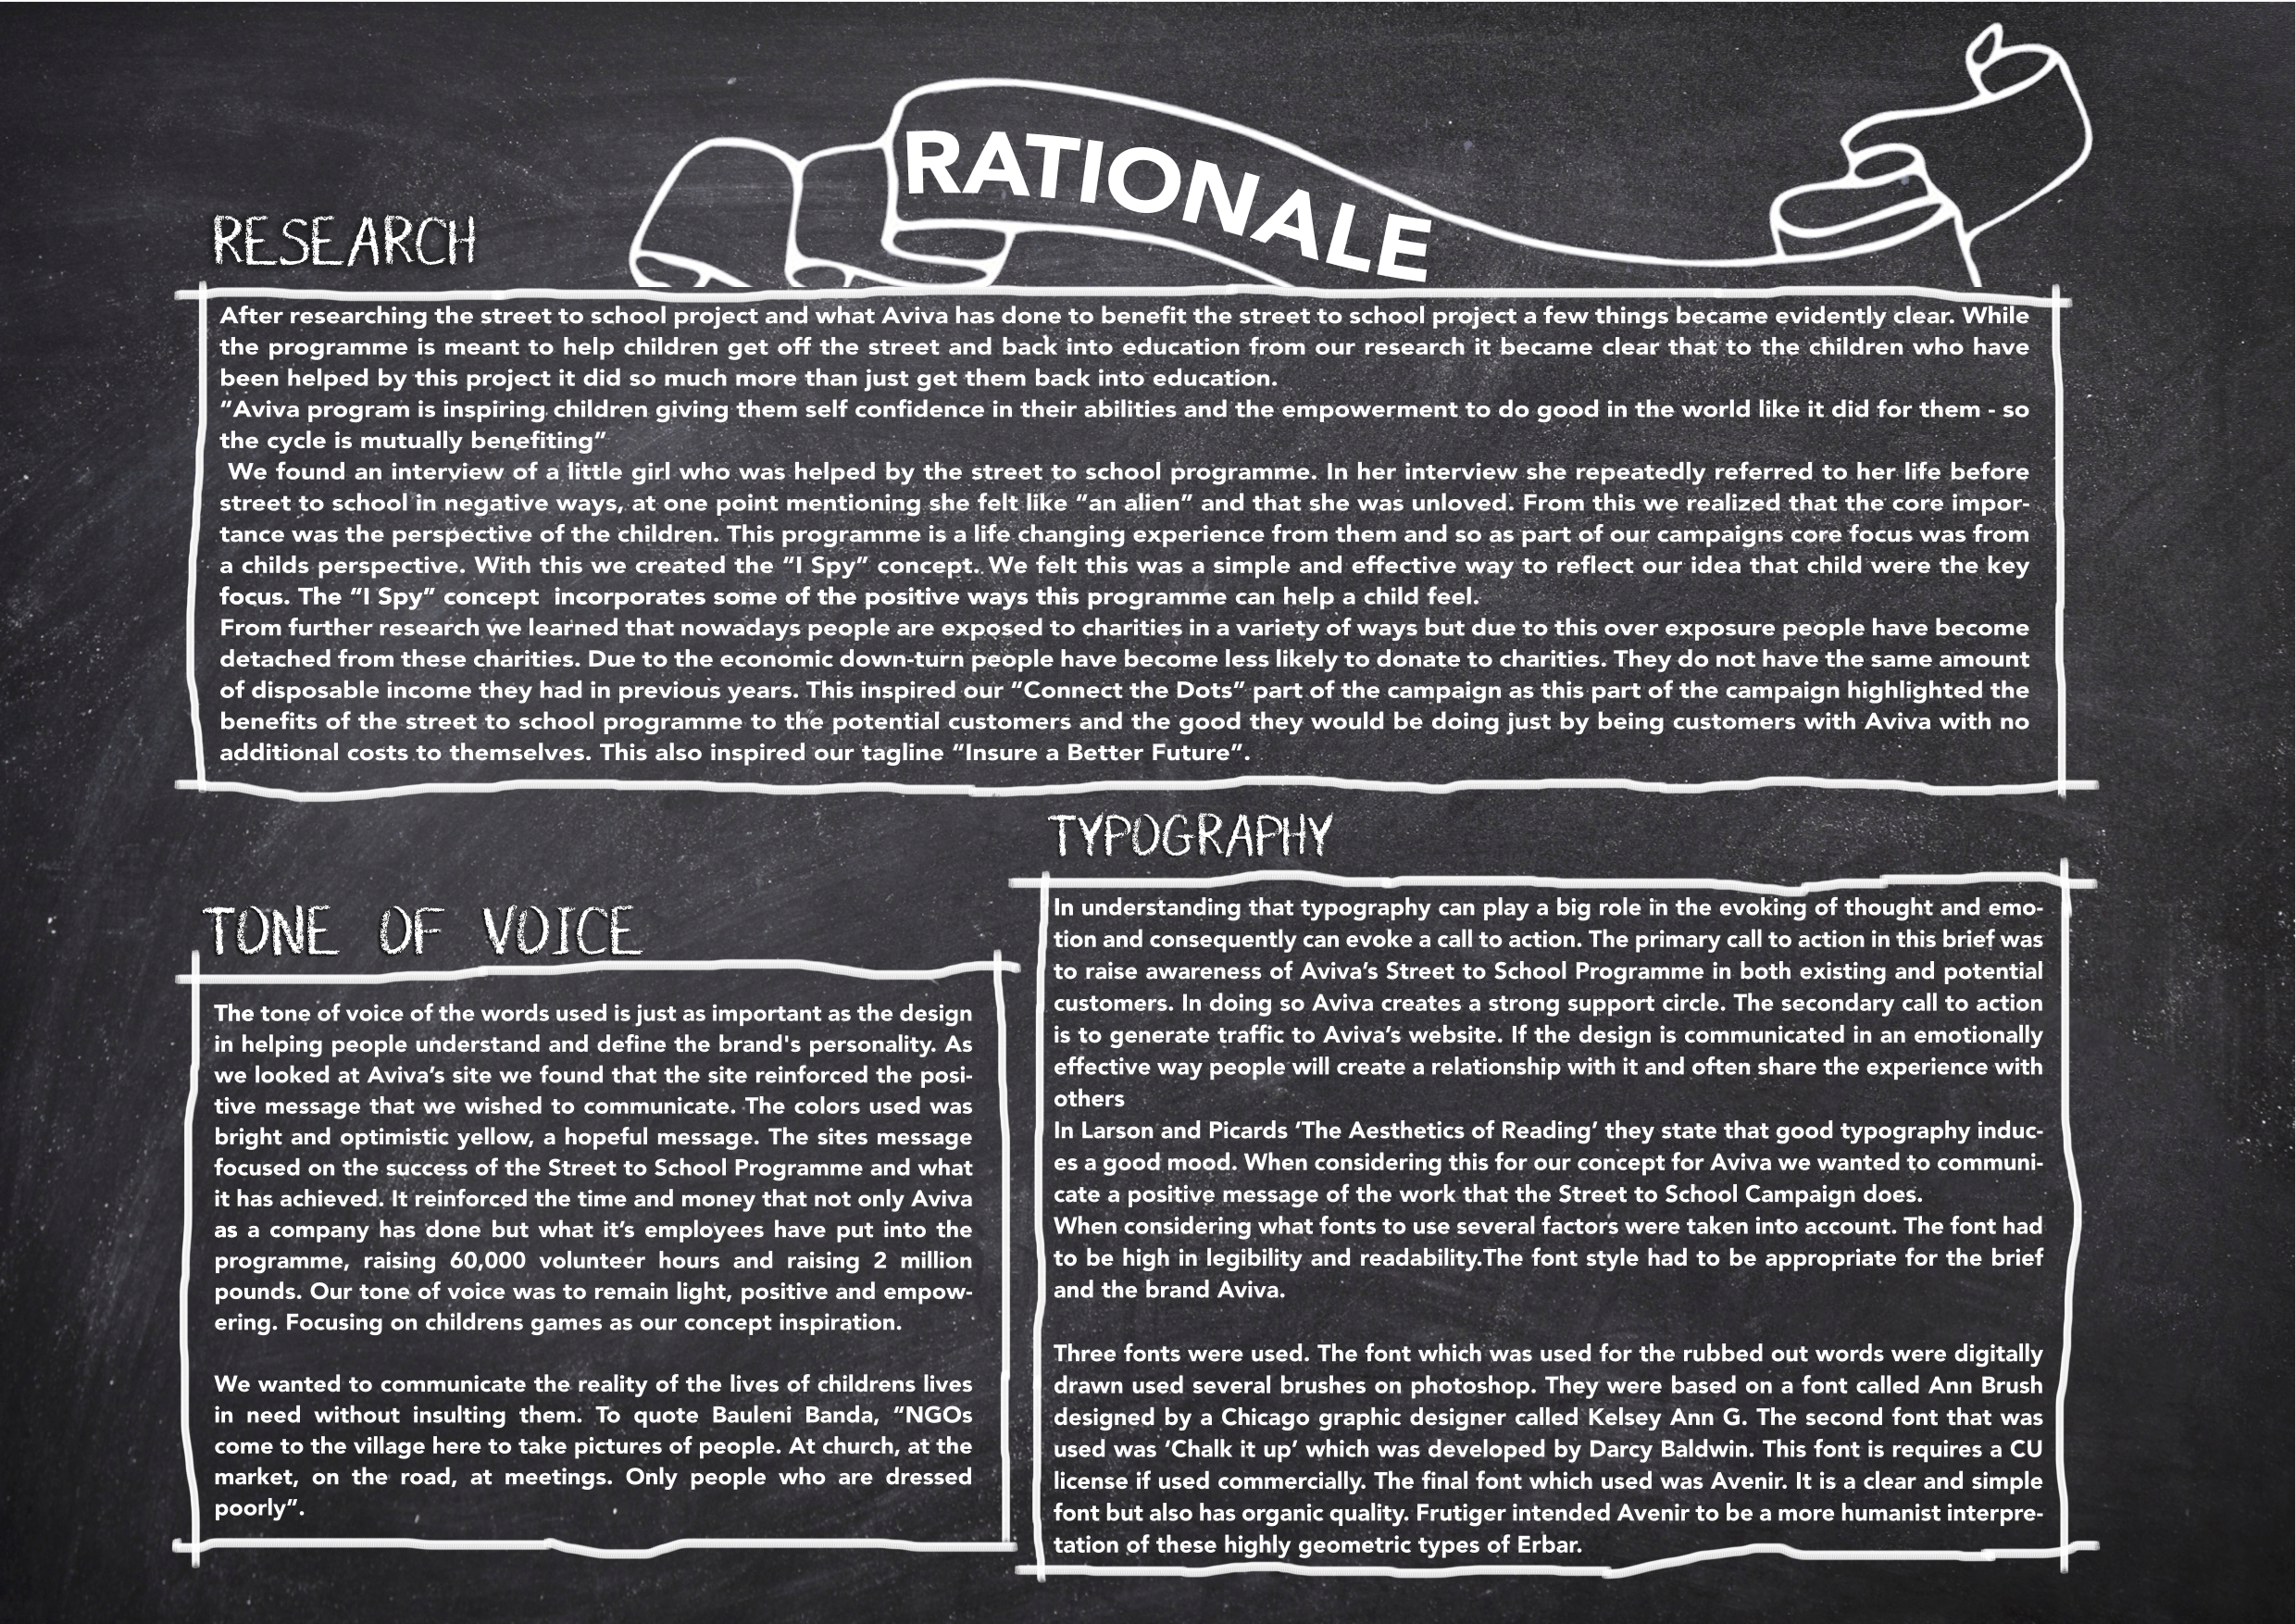 RATIONALE
RESEARCH
After researching the street to school project and what Aviva has done to benefit the street to school project a few things became evidently clear. While
the programme is meant to help children get off the street and back into education from our research it became clear that to the children who have
been helped by this project it did so much more than just get them back into education.
“Aviva program is inspiring children giving them self confidence in their abilities and the empowerment to do good in the world like it did for them - so
the cycle is mutually benefiting”
We found an interview of a little girl who was helped by the street to school programme. In her interview she repeatedly referred to her life before
street to school in negative ways, at one point mentioning she felt like “an alien” and that she was unloved. From this we realized that the core impor-
tance was the perspective of the children. This programme is a life changing experience from them and so as part of our campaigns core focus was from
a childs perspective. With this we created the “I Spy” concept. We felt this was a simple and effective way to reflect our idea that child were the key
focus. The “I Spy” concept incorporates some of the positive ways this programme can help a child feel.
From further research we learned that nowadays people are exposed to charities in a variety of ways but due to this over exposure people have become
detached from these charities. Due to the economic down-turn people have become less likely to donate to charities. They do not have the same amount
of disposable income they had in previous years. This inspired our “Connect the Dots” part of the campaign as this part of the campaign highlighted the
benefits of the street to school programme to the potential customers and the good they would be doing just by being customers with Aviva with no
additional costs to themselves. This also inspired our tagline “Insure a Better Future”.
TONE OF VOICE
The tone of voice of the words used is just as important as the design
in helping people understand and define the brand's personality. As
we looked at Aviva’s site we found that the site reinforced the posi-
tive message that we wished to communicate. The colors used was
bright and optimistic yellow, a hopeful message. The sites message
focused on the success of the Street to School Programme and what
it has achieved. It reinforced the time and money that not only Aviva
as a company has done but what it’s employees have put into the
programme, raising 60,000 volunteer hours and raising 2 million
pounds. Our tone of voice was to remain light, positive and empow-
ering. Focusing on childrens games as our concept inspiration.
We wanted to communicate the reality of the lives of childrens lives
in need without insulting them. To quote Bauleni Banda, “NGOs
come to the village here to take pictures of people. At church, at the
market, on the road, at meetings. Only people who are dressed
poorly”.
TYPOGRAPHY
In understanding that typography can play a big role in the evoking of thought and emo-
tion and consequently can evoke a call to action. The primary call to action in this brief was
to raise awareness of Aviva’s Street to School Programme in both existing and potential
customers. In doing so Aviva creates a strong support circle. The secondary call to action
is to generate traffic to Aviva’s website. If the design is communicated in an emotionally
effective way people will create a relationship with it and often share the experience with
others
In Larson and Picards ‘The Aesthetics of Reading’ they state that good typography induc-
es a good mood. When considering this for our concept for Aviva we wanted to communi-
cate a positive message of the work that the Street to School Campaign does.
When considering what fonts to use several factors were taken into account. The font had
to be high in legibility and readability.The font style had to be appropriate for the brief
and the brand Aviva.
Three fonts were used. The font which was used for the rubbed out words were digitally
drawn used several brushes on photoshop. They were based on a font called Ann Brush
designed by a Chicago graphic designer called Kelsey Ann G. The second font that was
used was ‘Chalk it up’ which was developed by Darcy Baldwin. This font is requires a CU
license if used commercially. The final font which used was Avenir. It is a clear and simple
font but also has organic quality. Frutiger intended Avenir to be a more humanist interpre-
tation of these highly geometric types of Erbar.